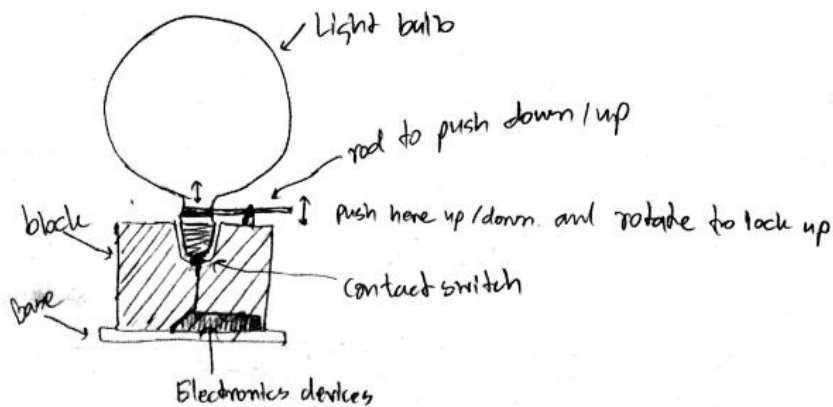 Light bulb
rod to push down/up
push here up/down and rotate to lock up
block
contact switch
Base
Electronics devices